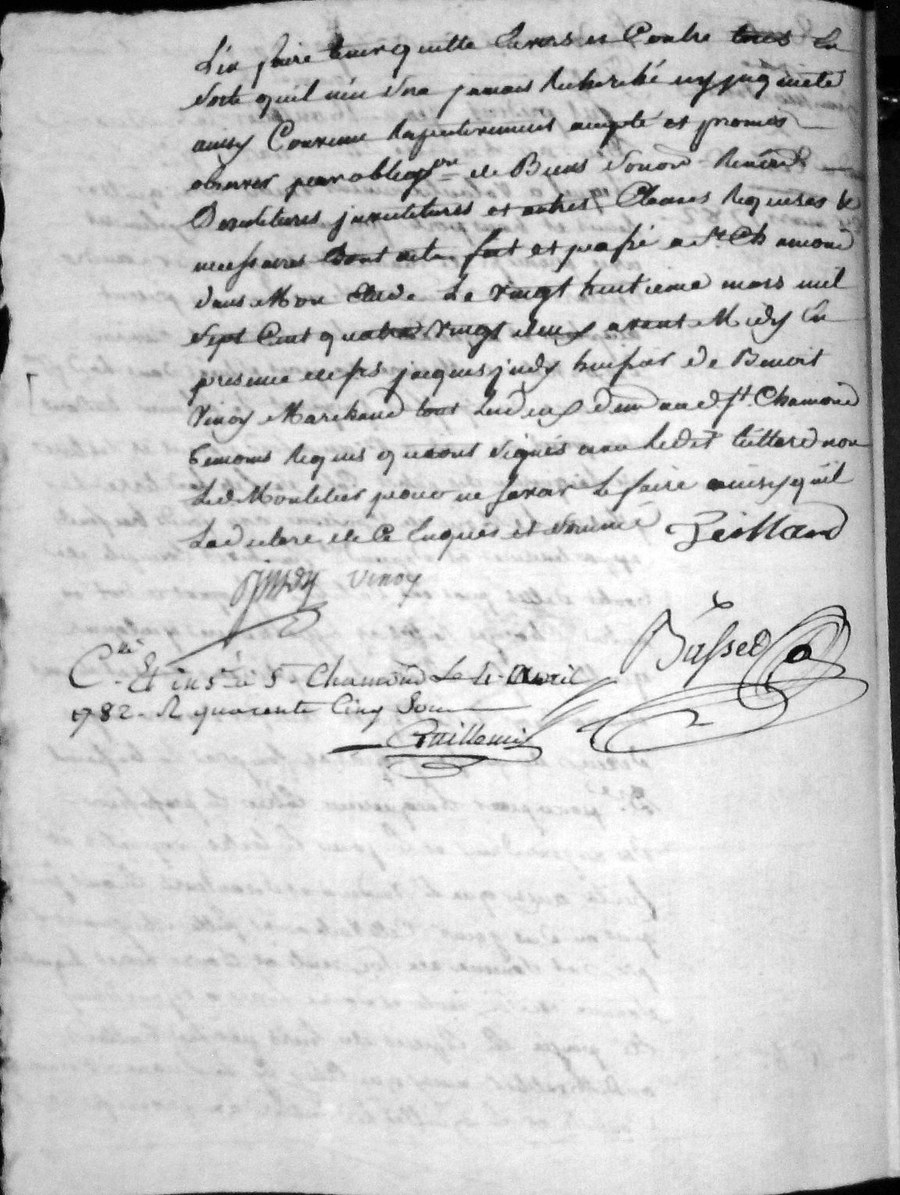 L'en faire tenir quitte Envers et Contre tous En
sorte quil n'en sera jamais Recherché ny jnquieté
ainsy Convenu Respectivement accepté et promis
observer par obligon de Biens soumon Renon
Constitures jnvestitures et autres Clauses Requises &
necessaires Dont acte fait et passé a St Chamond
dans Mon Etude Le vingt huitieme mars mil
sept Cent quatre vingt deux avant Midy En
presence de frs jacques judy huissier de Benoit
Vinoy Marchand tous Les deux demt au d st Chamond
temoins Requis qui ont signés avec Ledit non
Led Montelier pour ne savoir Le faire ainsy quil
La declaré de Ce Enquis et sommé Teillard
judy vinoy
Bassed
Clé Et insé à St Chamond Le 4 Avril
1782 R quarente Cinq Sous
Guillemin